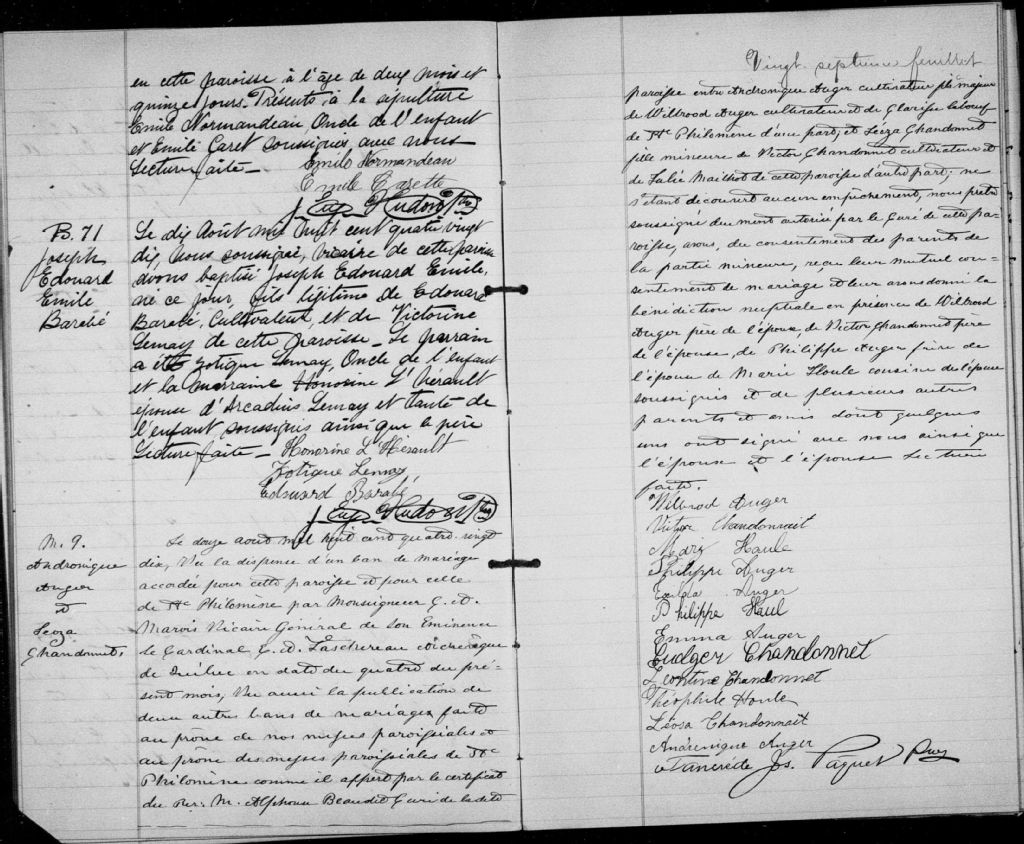 en cette paroisse à l'âge de deux mois et
quinze jours. Présents, à la sépulture
Emile Normandeau, Oncle de l'enfant
et Emile Caret soussignés avec nous
Lecture faite —
Emile Normandeau
Emile Carette
J. Eug. Hudon Ptre
B. 71
Joseph
Edouard
Emile
Barabé
Le dix Août mil huit cent quatre vingt
dix, Nous soussigné, vicaire de cette paroisse
avons baptisé Joseph Edouard Emile,
né ce jour, fils légitime de Edouard
Barabé, Cultivateur, et de Victorine
Lemay de cette paroisse — Le parrain
a été Zotique Lemay, Oncle de l'enfant
et la marraine Honorine L'Hérault
épouse d'Arcadius Lemay et tante de
l'enfant soussignés ainsi que le père
Lecture faite —
Honorine L'Hérault
Zotique Lemay
Edouard Barabé
J. Eug. Hudon Ptre
M. 9.
Andronique
Auger
et
Leoza
Chandonnet,
Le douze aout mil huit cent quatre-vingt
dix, Vu la dispense d'un ban de mariage
accordée pour cette paroisse et pour celle
de Ste Philomène par Monseigneur C. A.
Marois Vicaire Général de Son Eminence
le Cardinal E. A. Taschereau Archevêque
de Québec en date du quatre du pré-
sent mois, Vu aussi la publication de
deux autres bans de mariages faite
au prône de nos messes paroissiales et
au prône des messes paroissiales de Ste
Philomène comme il appert par le certificat
du Rev. M. Alphonse Beaudet Curé de la dite
Vingt septième feuillet
paroisse entre Andronique Auger cultivateur fils majeur
de Wilbrod Auger cultivateur et de Clarisse Leboeuf
de Ste Philomène d'une part, et Leoza Chandonnet
fille mineure de Victor Chandonnet cultivateur et
de Julie Mailhot de cette paroisse d'autre part; ne
s'étant découvert aucun empêchement, nous prêtre
soussigné dument autorisé par le Curé de cette pa-
roisse, avons, du consentement des parents de
la partie mineure, reçu leur mutuel con-
sentement de mariage et leur avons donné la
bénédiction nuptiale en présence de Wilbrod
Auger père de l'époux, de Victor Chandonnet père
de l'épouse, de Philippe Auger frère de
l'époux de Marie Houle cousine de l'épouse
soussignés et de plusieurs autres
parents et amis dont quelques
uns ont signé avec nous ainsi que
l'épouse et l'épouse Lecture
faite.
Wilbrod Auger
Victor Chandonnait
Philippe Auger
Auger
Philippe Haul
Emma Auger
Eudger Chandonnet
Léontine Chandonnet
Théophile Houle
Léosa Chandonnait
Andrenique Auger
Tancrède Jos. Paquet Ptre